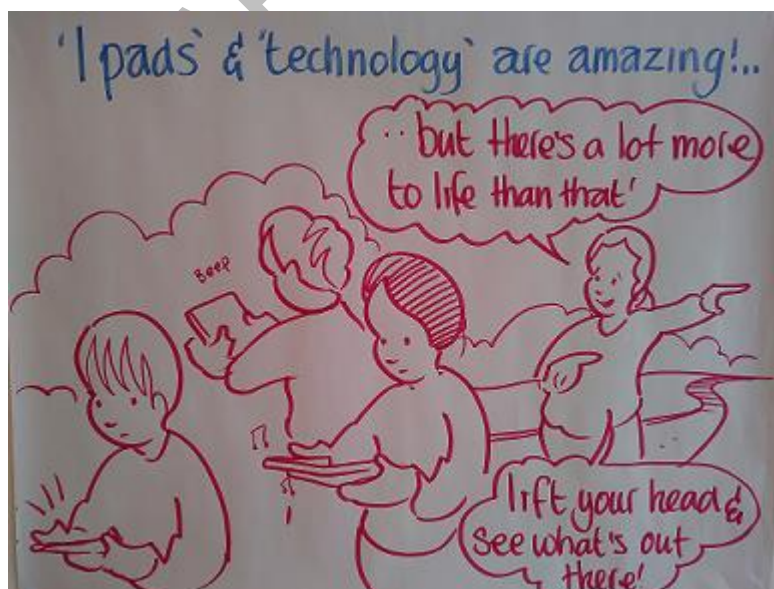 'I pads' & 'technology' are amazing!..
..but there's a lot more
to life than that'
Beep
lift your head &
see what's out
there!